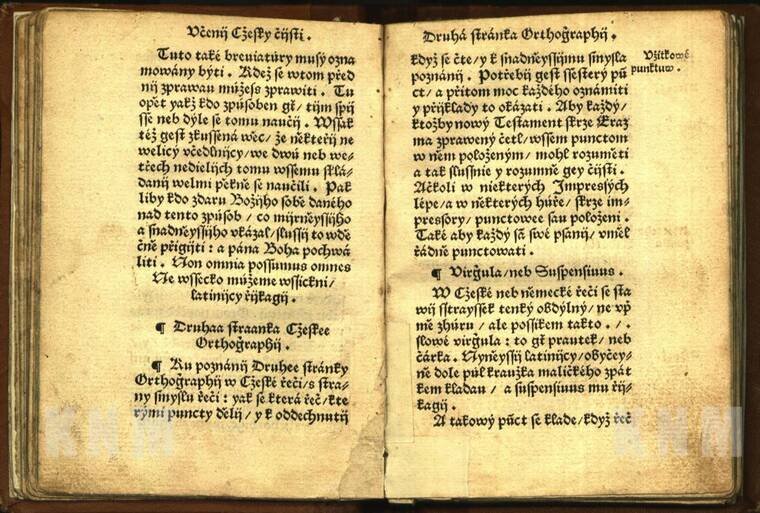 Včenij Cžesky čijsti.
Tuto také breuiatúry musý ozna
mowány býti. Kdež se wtom před
nij zprawau můžess zprawiti. Tu
opět yakž kdo způsoben gest / tijm spij
sse neb dýle se tomu naučij. Wssak
též gest zkussená wěc / že někteřij ne
welicý včedlnijcy / we dwú neb we-
třech nedielijch tomu wssemu sklá-
danij welmi pěkně se naučili. Pak
liby kdo zdaru Božijho sobě daného
nad tento způsob / co mijrněyssijho
a snadněyssijho vkázal / slussij to wdě
čně přigijti : a pána Boha pochwá
liti. Non omnia possumus omnes
Ne wssecko můžeme wssickni /
latinijcy řijkagij.
¶ Druhaa straanka Cžeskee
Orthographij.
¶ Ku poznánij Druhee stránky
Orthographij w Cžeské řeči / s stra-
ny smyslu řeči : yak se která řeč / kte
rými puncty dělij / y k oddechnutij
Druhá stránka Orthographij.
když se čte / y k snadněyssijmu smysla
poznánij. Potřebij gest ssesterý pũ
ct / a přitom moc každého oznámiti
y přijklady to okázati. Aby každý /
ktožby nowý Testament skrze Eraz
ma zprawený četl / wssem punctom
w něm položeným / mohl rozuměti
a tak slussnie y rozumně gey čijsti.
Ačkoli w niekterých Impressých
lépe / a w některých húře / skrze im-
pressory / punctowee sau položeni.
Také aby každý sã swé psanij / vměl
řádně punctowati.
Vžitkowé
punktuw.
¶ Virgula / neb Suspensiuus.
W Cžeské neb německé řeči se sta
wij sstrayssek tenký obdýlný / ne vp
mě zhúru / ale possikem takto . / .
slowé virgula : to gest prautek / neb
čárka. Nyněyssij latinijcy / obyčey-
ně dole púl kraužka maličkého zpát
kem kladau / a suspensiuus mu řij-
kagij.
A takowý pũct se klade / když řeč
KNM
KNM